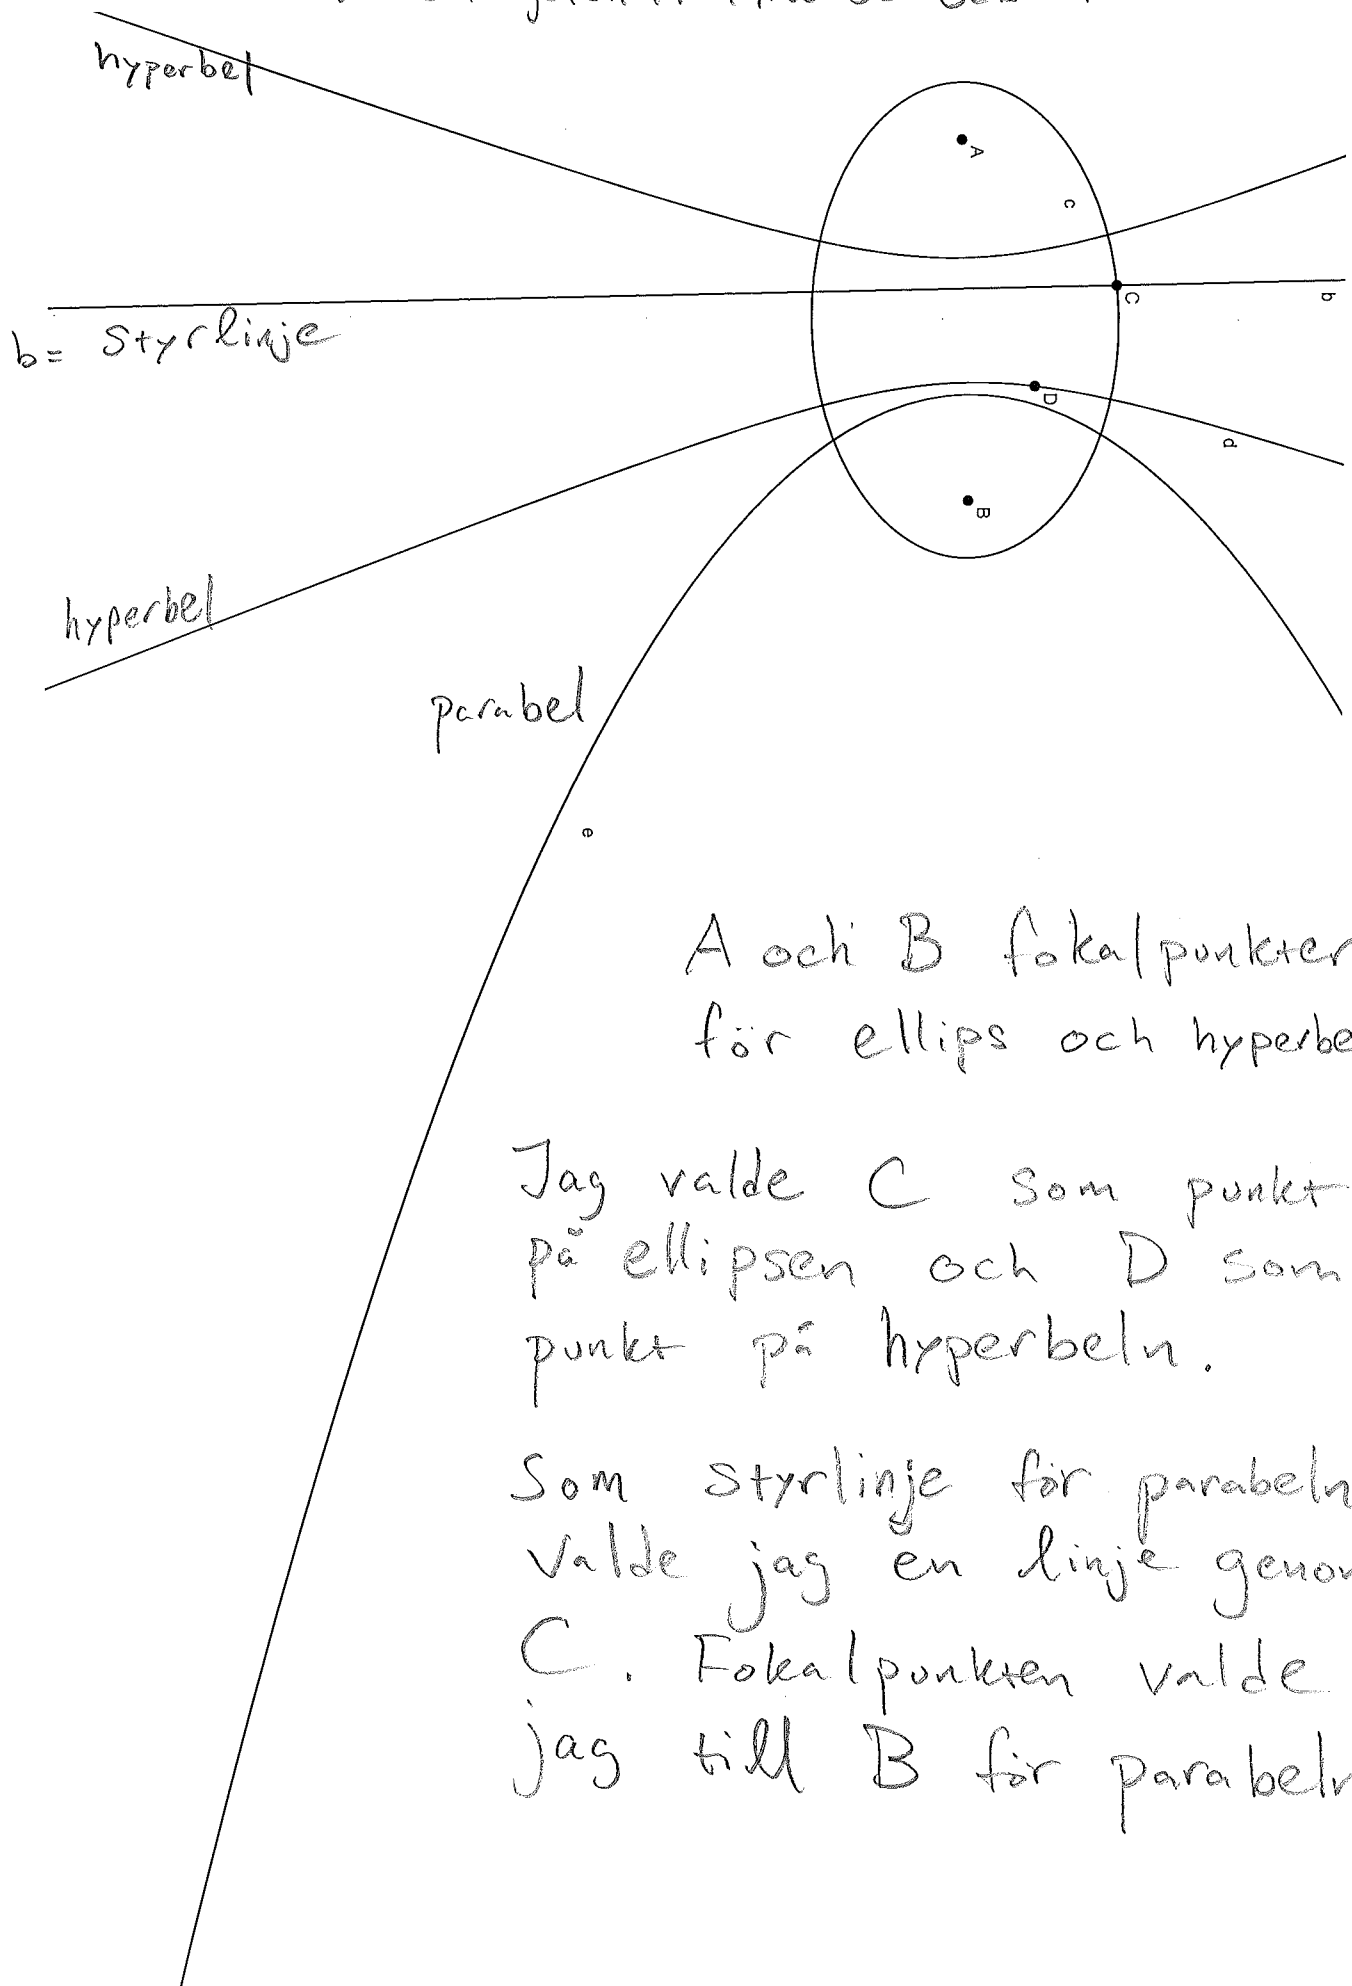 hyperbel
A
c
C
b
b= styrlinje
D
d
B
hyperbel
parabel
e
A och B fokalpunkter
för ellips och hyperbe
Jag valde C som punkt
på ellipsen och D som
punkt på hyperbeln.
Som styrlinje för parabeln
valde jag en linje genom
C. Fokalpunkten valde
jag till B för parabeln